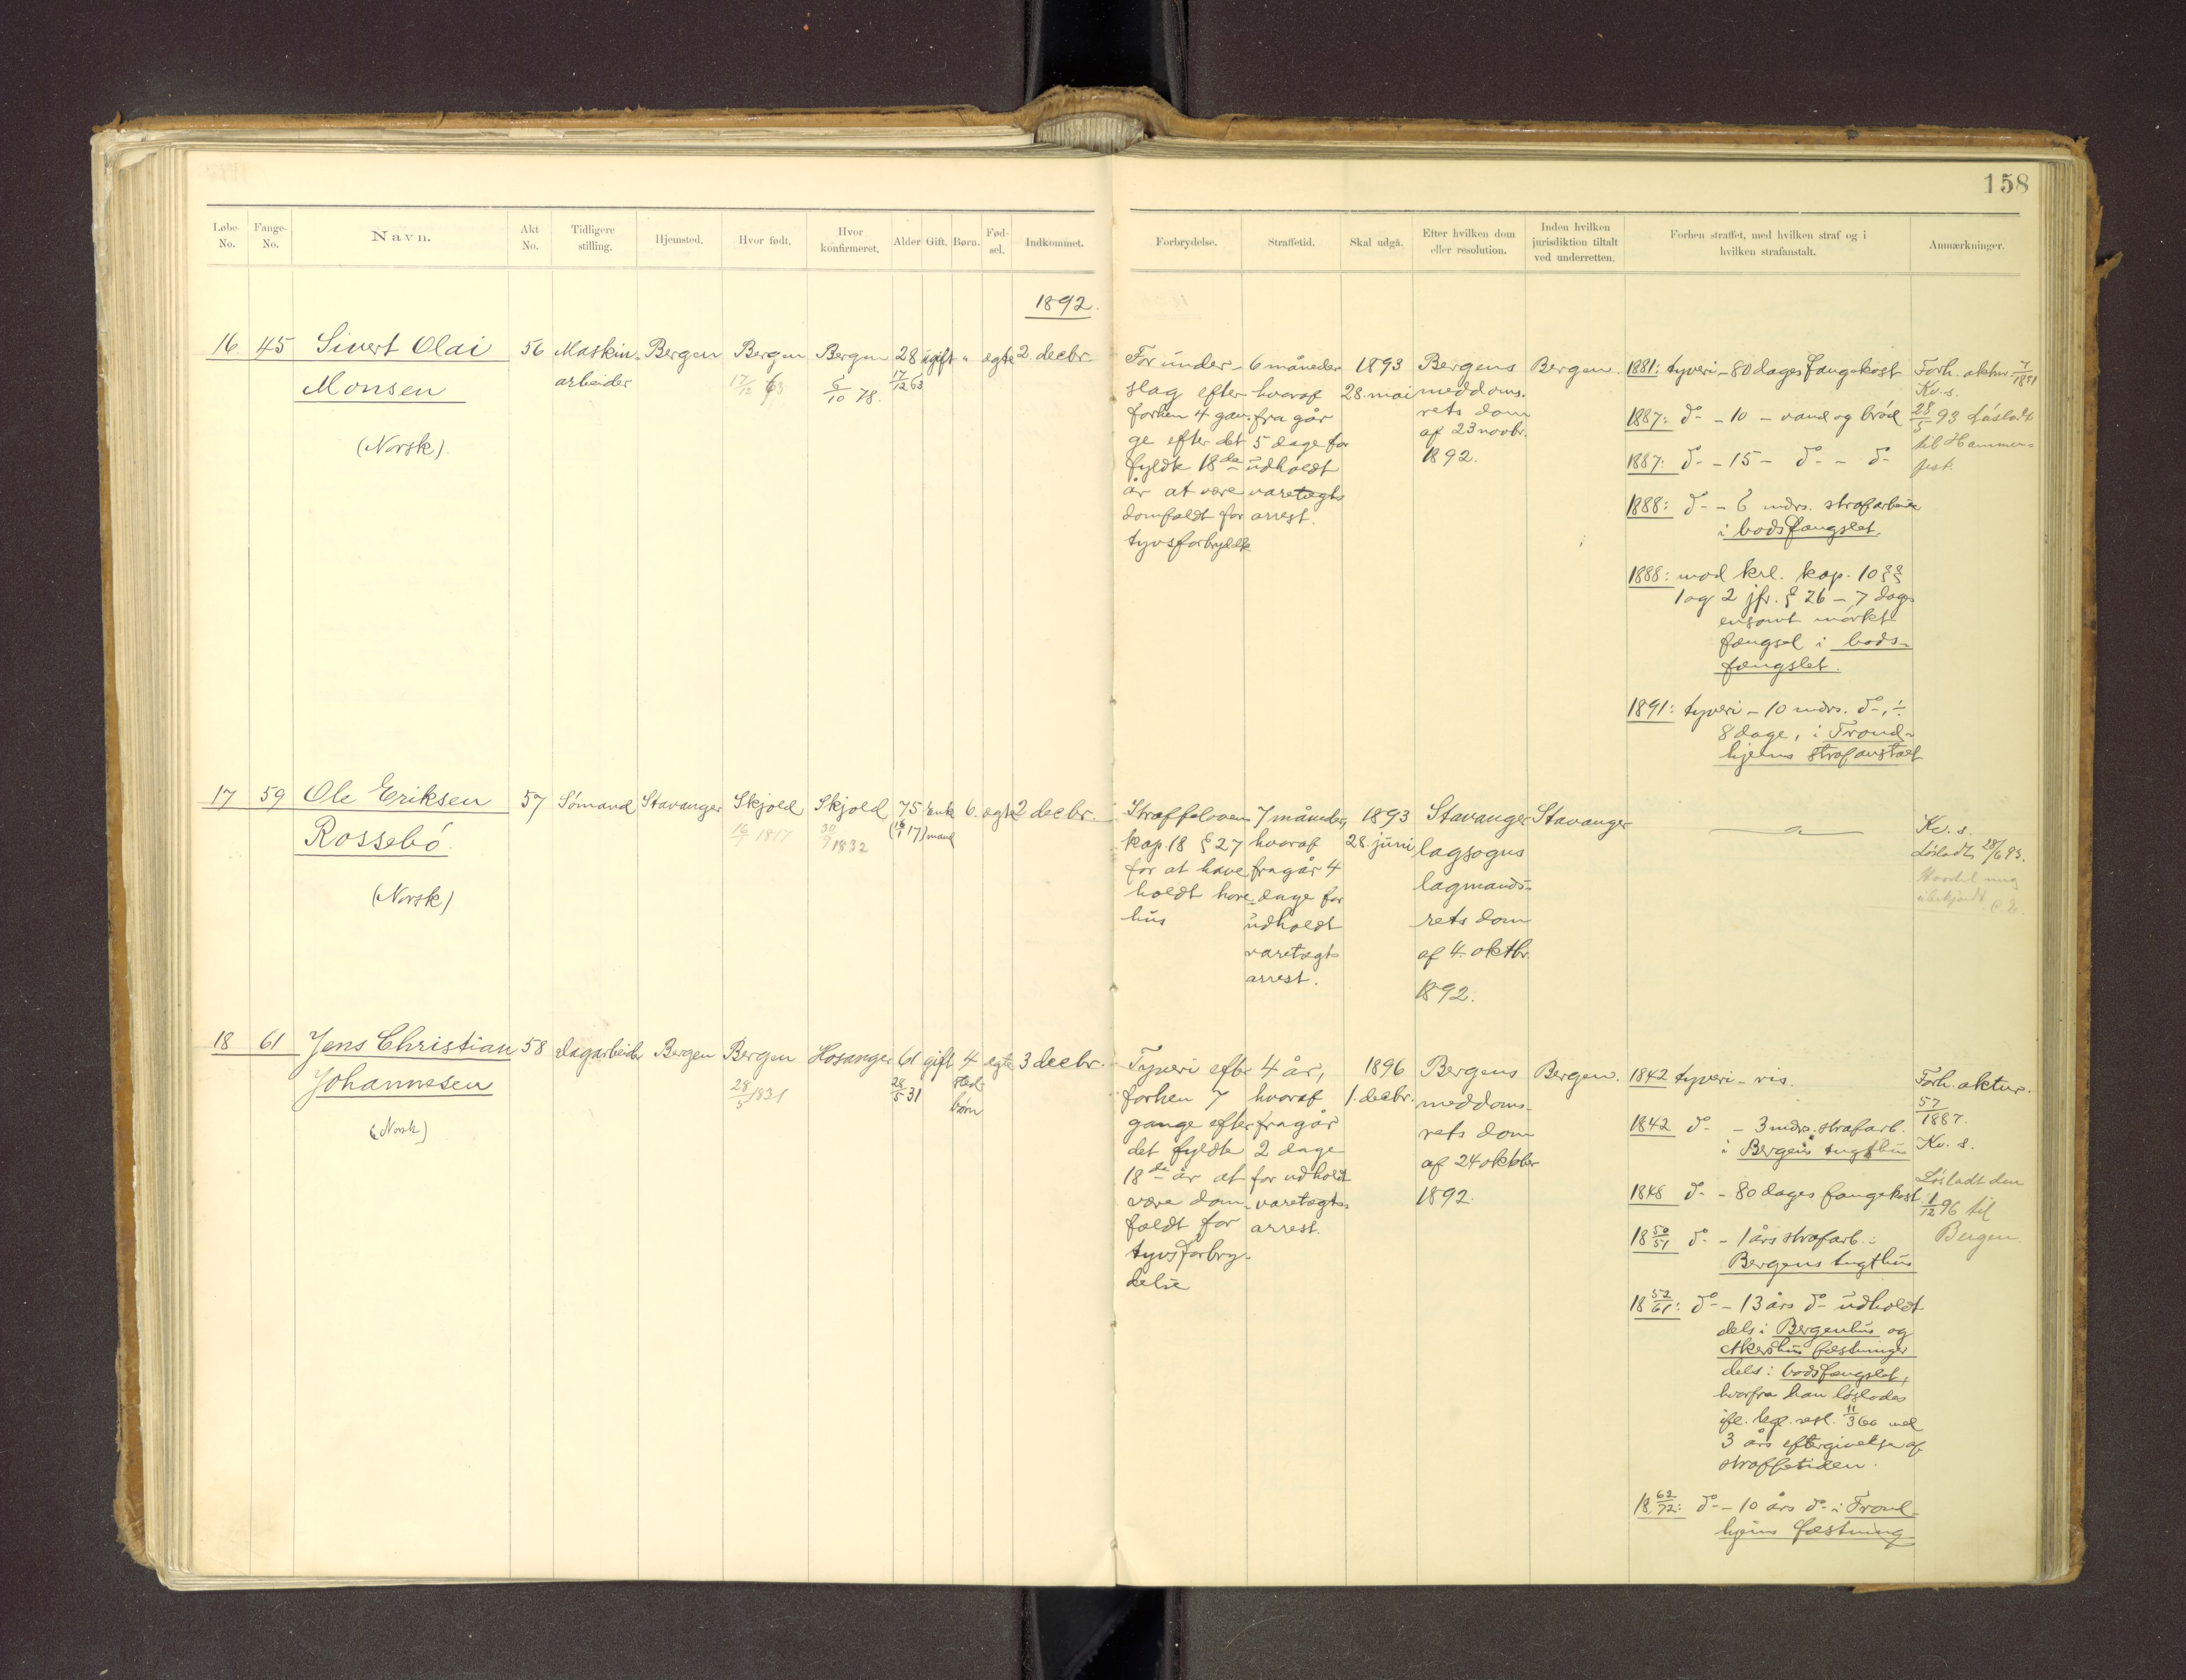 158
Løbe-No.
Fange-No.
Navn.
Akt No.
Tidligere stilling.
Hjemsted.
Hvor født.
Hvor konfirmeret.
Alder
Gift.
Børn.
Fød-sel.
Indkommet.
Forbrydelse.
Straffetid.
Skal udgå.
Efter hvilken dom eller resolution.
Inden hvilken jurisdiktion tiltalt ved underretten.
Forhen straffet, med hvilken straf og i hvilken strafanstalt.
Anmærkninger.
1892.
16 45 Sivert Olai
Monsen
(Norsk).
56
Maskin-
arbeider
Bergen
Bergen
17/12 63
Bergen
6/10 78.
28
17/12 63
ugift
"
ægte
2. decbr.
For under-
slag efter
forhen 4 gan-
ge efter det
fyldte 18de
år at være
domfældt for
tyvsforbrydelse
6 måneder
hvoraf
fra går
5 dage for
udholdt
varetægts
arrest.
1893
28. mai
Bergens
meddoms-
rets dom
af 23 novbr.
1892.
Bergen.
1881: tyveri - 80 dages fangekost
1887: do - 10 - vand og brød
1887: do - 15 - do - do
1888: do - 6 mdrs. strafarbeide
i bodsfængslet.
1888: mod krl. kap. 10 §§
1 og 2 jfr. § 26 - 7 dages
ensomt mørkt
fængsel i bods-
fængslet.
1891: tyveri - 10 mdrs. do, ÷
8 dage, i Trond-
hjems strafanstalt
Forh. aktnr. 7/1891
Kv. s.
28/5 93 Løsladt
til Hammer-
fest.
17 59 Ole Eriksen
Rossebø.
(Norsk)
57
Sømand
Stavanger
Skjold
16/1 1817
Skjold
30/9 1832
75
(16/1 17)
Enk
mand
6.
ægte
2 decbr.
Straffeloven
kap. 18 § 27
for at have
holdt hore-
hus
7 måneder,
hvoraf
fragår 4
dage for
udholdt
varetægts
arrest.
1893
28. juni
Stavanger
lagsogns
lagmands-
rets dom
af 4. oktbr.
1892.
Stavanger
Kv. s.
Løsladt 28/6 93.
18 61 Jens Christian
Johannesen
(Norsk)
58
Dagarbeider
Bergen
Bergen
28/5 1831
Hosanger
61
28/5 31
gift
4
sted-
børn
ægte
3 decbr.
Tyveri efter
forhen 7
gange efter
det fyldte
18de år at
være dom-
fældt for
tyvsforbry-
delse
4 år,
hvoraf
fragår
2 dage
for udholdt
varetægts-
arrest.
1896
1. decbr.
Bergens
meddoms-
rets dom
af 24 oktober
1892.
Bergen.
1842 tyveri - ris.
1842 do - 3 mdrs. strafarb.
i Bergens tugthus
1848 do - 80 dages fangekost
18 50/51 do - 1 års strafarb. i
Bergens tugthus
18 52/61: do - 13 års do udholdt
dels i Bergenhus og
Akershus fæstninger
dels i bodsfængslet,
hvorfra han løslodes
ifl. kgl. resl. 11/3 66 med
3 års eftergivelse af
straffetiden.
18 62/72: do - 10 års do i Trond-
hjems fæstning
Forh. aktnr.
57/1887.
Kv. s.
Løsladt den
1/12 96 til
Bergen.